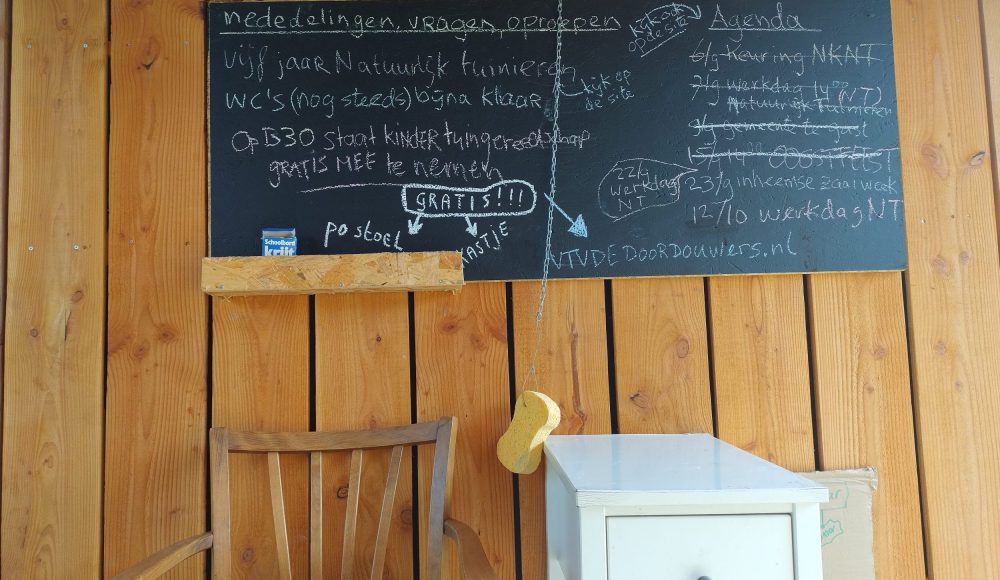 mededelingen, vragen, oproepen
Vijf jaar Natuurlijk tuinieren
WC's (nog steeds) bijna klaar
kijk op
de site
Op B30 staat KINDER tuingereedschap
GRATIS MEE te nemen
GRATIS!!!
po stoel
KASTJE
Schoolbord
krijt
kijk ook
op de site
Agenda
6/9 Keuring NKNT
7/9 werkdag NT)
Natuurlijk Tuinieren
9/9 gemeente
22/9
werkdag
NT
23/9 inheemse zaaiweek
12/10 werkdag NT
VTVDEDOORDOUWERS.nl